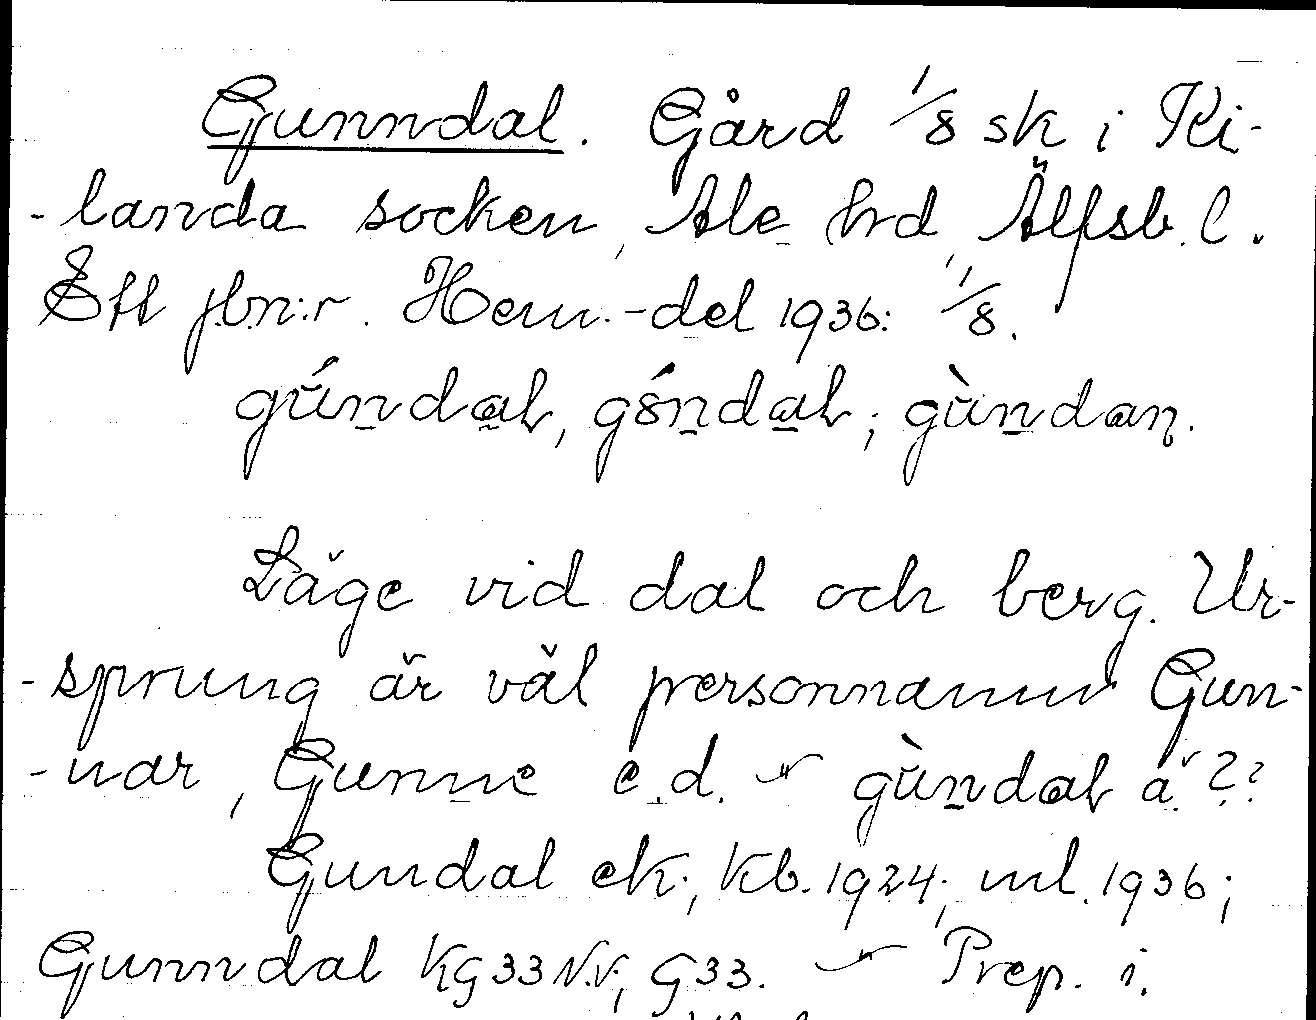 Gunndal. Gård 1/8 sk i Ki-
-landa socken, Ale hrd, Älfsb. l.
Ett jbn:r. Hem.-del 1936: 1/8.
Läge vid dal och berg. Ur-
-sprung är väl personnamn Gun-
-nar, Gunne e.d. – gùndaɫ ä. ??
Gundal ek.; Kb. 1924; ml. 1936;
Gunndal Kg33 N.V; G33. – Prep. i.